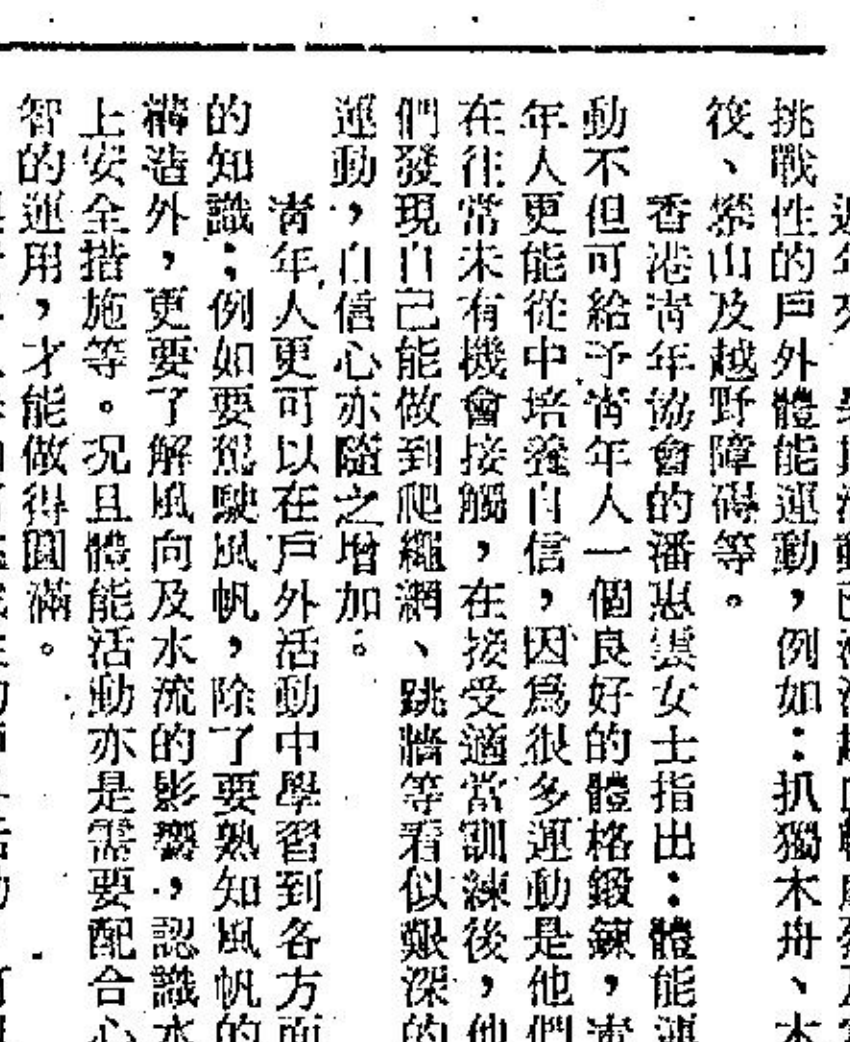 挑戰性的戶外體能運動，例如：扒獨木舟、木
筏、攀山及越野障碍等。
香港青年協會的潘惠雲女士指出：體能運
動不但可給予青年人一個良好的體格鍛鍊，青
年人更能從中培養自信，因爲很多運動是他們
在往常未有機會接觸，在接受適當訓練後，他
們發現自己能做到爬繩網、跳牆等看似艱深的
運動，自信心亦隨之增加。
青年人更可以在戶外活動中學習到各方面
的知識；例如要駕駛風帆，除了要熟知風帆的
構造外，更要了解風向及水流的影響，認識水
上安全措施等。况且體能活動亦是需要配合心
智的運用，才能做得圓滿。